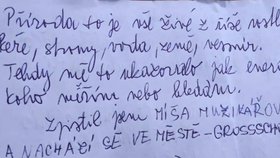 Příroda to je vše živé z říše rostl
keře, stromy, voda, země, vesmír.
Tehdy mě to ukazovalo jak ener
koho měřím nebo hledám.
Zjistil jsem MÍŠA MUZIKÁŘOV
A NACHÁZÍ SE VE MĚSTE-GROSSSCH